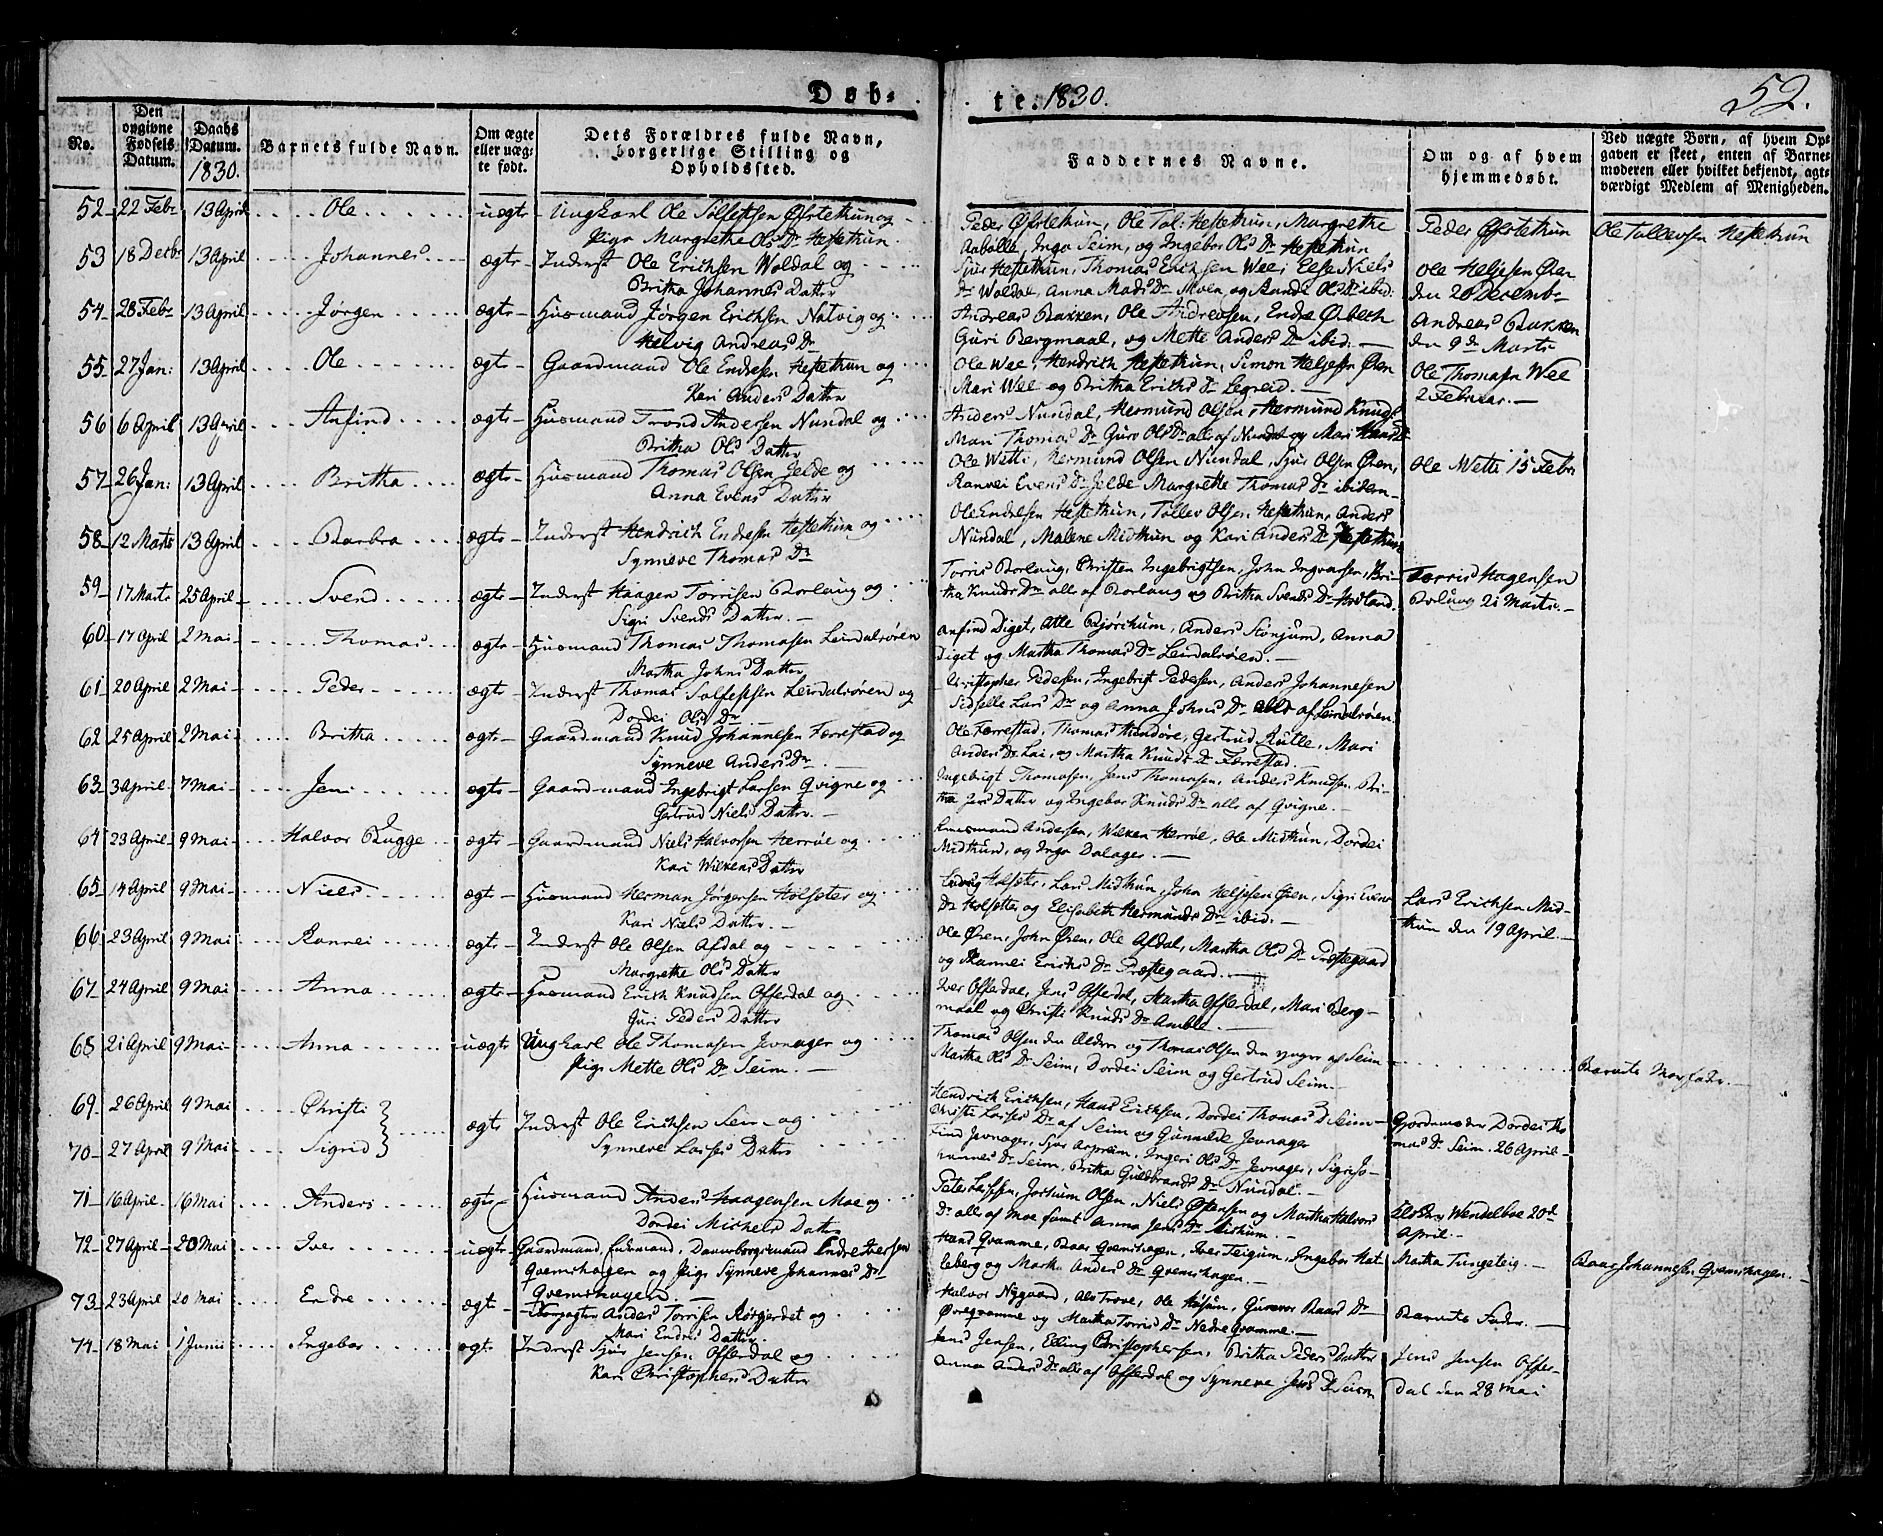 Døb-
te. 1830.
52.
No.
Den opgivne Fødsels Datum.
Daabs Datum. 1830.
Barnets fulde Navn.
Om ægte eller uægte født.
Dets Forældres fulde Navn, borgerlige Stilling og Opholdssted.
Faddernes Navne.
Om og af hvem hjemmedøbt.
Ved uægte Børn, af hvem Opgaven er skeet, enten af Barnemoderen eller hvilket bekjendt, agtværdigt Medlem af Menigheden.
52 22 Febr 13 April Ole uægte Ungkarl Ole Sølfestsen Øfstethun og
Pige Margrethe Ols Dr Hestethun.
Peder Øfstethun, Ole Tol: Hestethun, Margrethe
Aabølle, Inga Seim, og Ingebor Ols Dr Hestethun
Peder Øfstethun
Ole Tollevsen Hestethun
53 18 Decbr 13 April Johannes ægte Inderst Ole Erichsen Woldal og
Britha Johannes Datter
Sjur Hestethun, Thomas Erichsen Wee, Else Niels
Dr Woldal, Anna Mads Dr Moen og Ols Dr ibid:
Ole Heljesen Øren
den 20 Decembr
54 28 Febr 13 April Jørgen ægte Huusmand Jørgen Erichsen Natvig og
Helvig Andreas Dr
Andreas Bakken, Ole Andreasen, Endre
Guri Bergmaal, og Mette Anders Dr ibid.
Andreas Bakken
den 9de Marts
55 27 Jan: 13 April Ole ægte Gaardmand Ole Endresen Hestethun og
Kari Anders Datter
Ole Wee, Hendrich Hestethun, Simon Heljesen Øren
Mari Wee og Britha Erichs Dr Legreid.
Ole Thomasen Wee
2 Februar.
56 6 April 13 April Anfind ægte Huusmand Trond Andersen Nundal og
Britha Ols Datter
Anders Nundal, Hermund Olsen, Hermund Knuds
Mari Thomas Dr Guro Ols Dr alle af Nundal og Mari
57 26 Jan: 13 April Britha ægte Huusmand Thomas Olsen Jelde og
Anna Evens Datter
Ole Wetti, Hermund Olsen Nundal, Sjur Olsen Øren,
Ranvei Evens Dr Jelde Margrethe Thomas Dr ibidem
Ole Wetti 15 Febr
58 12 Marts 13 April Barbra ægte Inderst Hendrich Endresen Hestethun og
Synneve Thomas Dr
Ole Endresen Hestethun, Tollev Olsen Hestethun, Anders
Nundal, Malene Midthun og Kari Anders Dr Hestethun
59 17 Marts 25 April Svend ægte Inderst Haagen Torrisen Borlaug og
Sigri Svends Datter.
Torris Borlaug, Christen Ingebrigtsen, John Ingvarsen, Bri-
tha Knuds Dr alle af Borlaug og Britha Svends Dr Hovland.
Torris Hagensen
Borlaug 21 Marts.
60 17 April 2 Mai Thomas ægte Huusmand Thomas Thomasen Leirdalsøren
Martha Johns Datter
Anfind Diget, Atle Bjørkum, Anders Stønjum, Anna
Diget og Martha Thomas Dr Leirdalsøren.
61 20 April 2 Mai Peder ægte Inderst Thomas Solfestsen Leirdalsøren og
Dordei Ols Dr
Christopher Pedersen, Ingebrigt Pedersen, Anders Johannesen
Sidselle Lars Dr og Anna Johns Dr alle af Leirdalsøren
62 25 April 2 Mai Britha ægte Gaardmand Knud Johannesen Færrestad og
Synneve Anders Dr
Ole Færrestad, Thomas Hundere, Gertrud Rutle, Mari
Anders Dr Lai, og Martha Knuds Dr Færrestad.
63 3 April 7 Mai Jens ægte Gaardmand Ingebrigt Larsen Qvigne og
Gertrud Niels Datter.
Ingebrigt Thomasen, Jens Thomasen, Anders Knudsen, Bri-
tha Jens Datter og Ingebor Knuds Dr alle af Qvigne.
64 23 April 9 Mai Halvor Bugge ægte Gaardmand Niels Halvorsen Herrøe og
Kari Wilkens Datter
Andersen, Wilken Herrøe, Ole Midthun, Dordei
Midthun, og Inga Dalager.
65 14 April 9 Mai Niels ægte Huusmand Herman Jørgensen Holseter og
Kari Niels Datter.
Holseter, Lars Midthun, John Heljesen Øren, Sigri Evens
Dr Holsetter og Elisabeth Hermunds Dr ibid.
Lars Erichsen Mid-
thun den 19 April.
66 23 April 9 Mai Rannei ægte Inderst Ole Olsen Afdal og
Margrethe Ols Datter
Ole Øren, John Øren, Ole Afdal, Martha Ols Dr Præstegaard
og Rannei Erichs Dr Præstegaard.
67 24 April 9 Mai Anna ægte Huusmand Erich Knudsen Offerdal og
Guri Peders Datter
Iver Offerdal, Jens Offerdal, Martha Offerdal, Mari Berg-
maal og Christi Knuds Dr Amble.
68 21 April 9 Mai Anna uægte Ungkarl Ole Thomasen Jevnager og
Pige Mette Ols Dr Seim.
Thomas Olsen den Ældre og Thomas Olsen den yngre af Seim
Martha Ols Dr Seim, Dordei Seim og Gertrud Seim.
Barnets Morfader.
69 26 April 9 Mai Christi
70 27 April 9 Mai Sigrid
ægte Inderst Ole Erichsen Seim og
Synneve Larses Datter
Hendrich Erichsen, Hans Erichsen, Dordei Thomas Dr Seim
Christi Larses Dr af Seim og Gunnilde Jevnager
Find Jevnager, Sjur, Ingeri Ols Dr Jevnager, Sigri Jo-
hannes Dr Seim, Britha Guldbrands Dr Nundal.
Gjordemoder Dordei Tho
mas Dr Seim, 26 April
71 16 April 16 Mai Anders ægte Huusmand Anders Haagensen Moe og
Dordei Michels Datter
Peter Larsen, Jochum Olsen, Niels Øftensen og Martha Halvors
Dr alle af Moe samt Anna Jens Dr
Klokker Wendelboe 20de
April.
72 27 April 20 Mai Iver uægte Gaardmand, Enkemand, Dannebrogsmand Endre Iversen
Qvemshagen og Pige Synneve Johannes Dr
Qvemshagen.
Hans Qvamme, Baar Qvemshagen, Iver Teigum, Ingebor Hat-
leberg og Marth. Anders Dr Qvemshagen.
Martha Tungeteig.
Baar Johannesen Qvemshagen.
73 23 April 20 Mai Endre ægte Forpagter Anders Torrisen Rørgjerdet og
Mari Endres Datter.
Halvor Nygaard, Ole, Gunvor Baars Dr
Øvreqvamme og Martha Torris Dr Nedre Qvamme.
Barnets Fader.
74 18 Mai 1 Junii Ingebor ægte Inderst Sjur Jensen Offerdal og
Kari Christophers Datter
Jens Jensen, Elling Christophersen, Britha Peders Datter
Anna Anders Dr alle af Offerdal og Synneve Jens Dr Seim
Jens Jensen Offer-
dal den 28 Mai